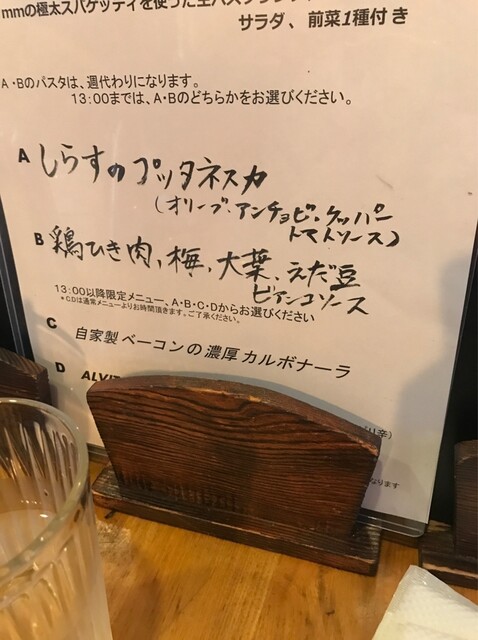 mmの極太スパゲッティを使った生パスタランチ
サラダ、前菜1種付き
A・Bのパスタは、週代わりになります。
13:00までは、A・Bのどちらかをお選びください。
A しらすのプッタネスカ
(オリーブ、アンチョビ、ケッパー
トマトソース)
B 鶏ひき肉、梅、大葉、えだ豆
ビアンコソース
13:00以降限定メニュー、A・B・C・Dからお選びください
*C,Dは通常メニューよりお時間頂きます。ご了承ください。
C 自家製ベーコンの濃厚カルボナーラ
D ALVI
辛)
なります